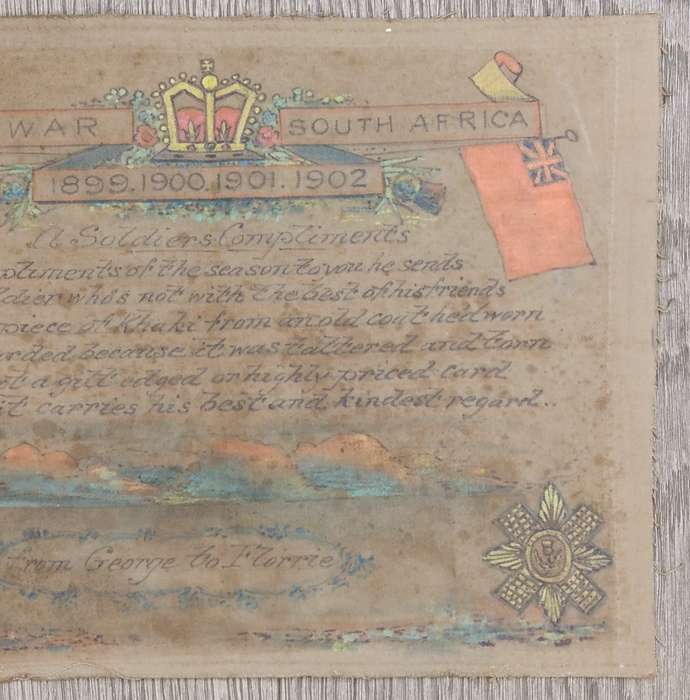 WAR SOUTH AFRICA
1899.1900.1901.1902
A Soldiers Compliments
pliments of the season to you he sends
ldier who's not with the best of his friends
piece of Khaki from an old coat he'd worn
arded because it was tattered and torn
ot a gilt edged or highly priced card
it carries his best and kindest regard..
from George to Florrie